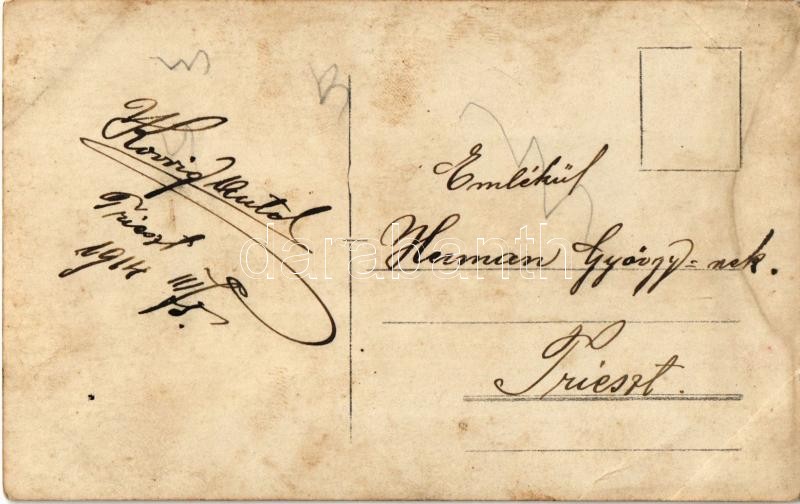 Kovrig Antal
Trieszt
1914 III/5.
Emlékül
Herman György=nek.
Trieszt.
darabanth